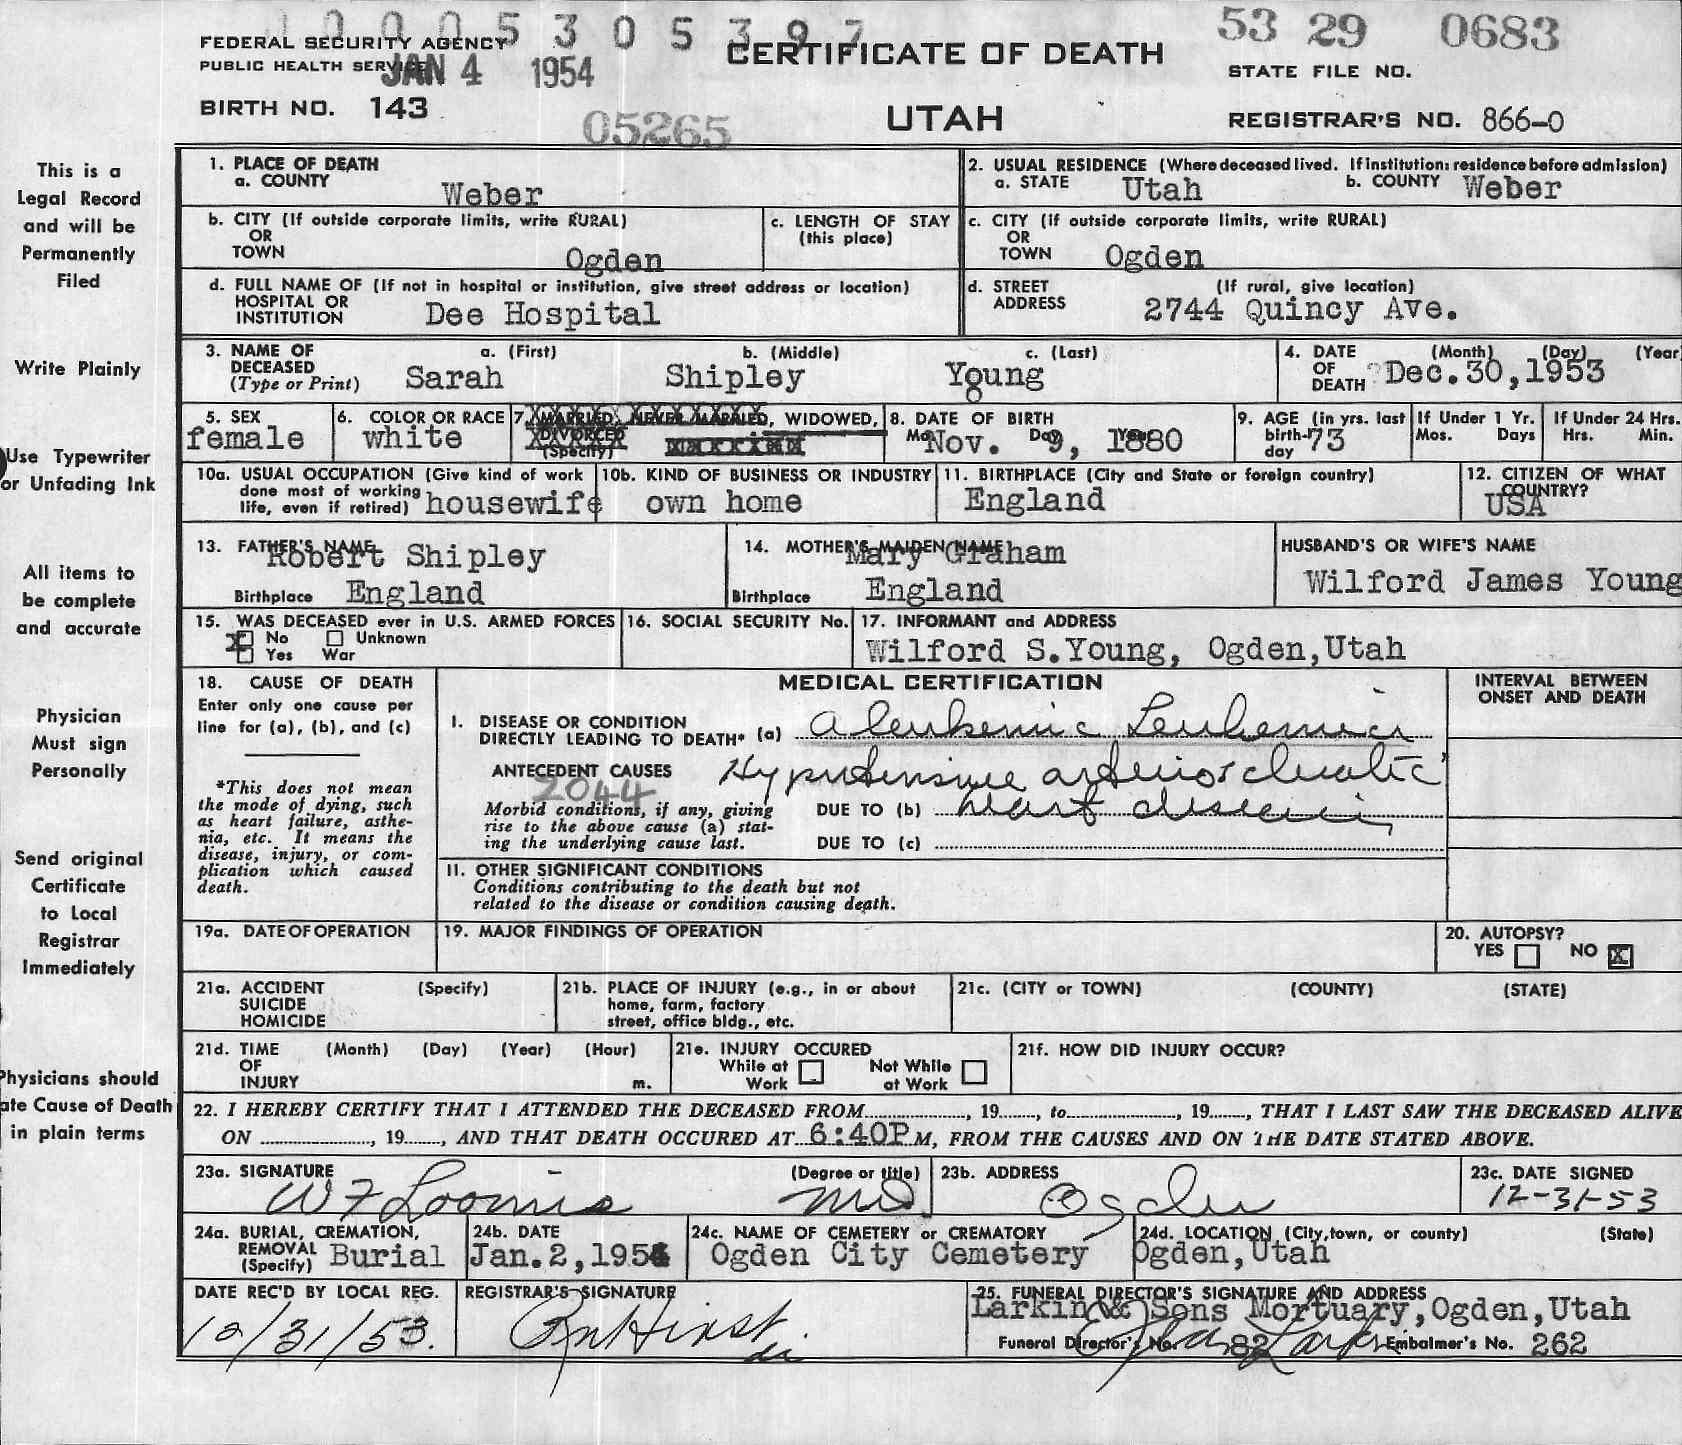 1 0 0 0 5 3 0 5 3 9 7
53 29 0683
FEDERAL SECURITY AGENCY
PUBLIC HEALTH SERVICE
JAN 4 1954
CERTIFICATE OF DEATH
STATE FILE NO.
BIRTH NO. 143
05265
UTAH
REGISTRAR'S NO. 866-0
This is a
Legal Record
and will be
Permanently
Filed
Write Plainly
Use Typewriter
or Unfading Ink
All items to
be complete
and accurate
Physician
Must sign
Personally
Send original
Certificate
to Local
Registrar
Immediately
Physicians should
ate Cause of Death
in plain terms
1. PLACE OF DEATH
a. COUNTY Weber
2. USUAL RESIDENCE (Where deceased lived. If institution: residence before admission)
a. STATE Utah b. COUNTY Weber
b. CITY (If outside corporate limits, write RURAL)
OR
TOWN Ogden
c. LENGTH OF STAY
(this place)
c. CITY (If outside corporate limits, write RURAL)
OR
TOWN Ogden
d. FULL NAME OF (If not in hospital or institution, give street address or location)
HOSPITAL OR
INSTITUTION Dee Hospital
d. STREET (If rural, give location)
ADDRESS 2744 Quincy Ave.
3. NAME OF DECEASED (Type or Print)
a. (First) b. (Middle) c. (Last)
Sarah Shipley Young
4. DATE OF DEATH (Month) (Day) (Year)
Dec.30,1953
5. SEX
female
6. COLOR OR RACE
white
7. MARRIED, NEVER MARRIED, WIDOWED,
DIVORCED
(Specify)
8. DATE OF BIRTH
Mo. Day Year
Nov. 9, 1880
9. AGE (in yrs. last
birth-
day 73
If Under 1 Yr.
Mos. Days
If Under 24 Hrs.
Hrs. Min.
10a. USUAL OCCUPATION (Give kind of work
done most of working
life, even if retired) housewife
10b. KIND OF BUSINESS OR INDUSTRY
own home
11. BIRTHPLACE (City and State or foreign country)
England
12. CITIZEN OF WHAT
COUNTRY?
USA
13. FATHER'S NAME
Robert Shipley
Birthplace England
14. MOTHER'S MAIDEN NAME
Mary Graham
Birthplace England
HUSBAND'S OR WIFE'S NAME
Wilford James Young
15. WAS DECEASED ever in U.S. ARMED FORCES
X No Unknown
Yes War
16. SOCIAL SECURITY No.
17. INFORMANT and ADDRESS
Wilford S.Young, Ogden,Utah
18. CAUSE OF DEATH
Enter only one cause per
line for (a), (b), and (c)
*This does not mean
the mode of dying, such
as heart failure, asthe-
nia, etc. It means the
disease, injury, or com-
plication which caused
death.
MEDICAL CERTIFICATION
INTERVAL BETWEEN
ONSET AND DEATH
I. DISEASE OR CONDITION
DIRECTLY LEADING TO DEATH* (a) Aleukemic Leukemia
ANTECEDENT CAUSES Hypertensive arteriosclerotic
2044
Morbid conditions, if any, giving
rise to the above cause (a) stat-
ing the underlying cause last.
DUE TO (b) heart disease
DUE TO (c)
11. OTHER SIGNIFICANT CONDITIONS
Conditions contributing to the death but not
related to the disease or condition causing death.
19a. DATE OF OPERATION
19. MAJOR FINDINGS OF OPERATION
20. AUTOPSY?
YES NO X
21a. ACCIDENT (Specify)
SUICIDE
HOMICIDE
21b. PLACE OF INJURY (e.g., in or about
home, farm, factory
street, office bldg., etc.
21c. (CITY or TOWN) (COUNTY) (STATE)
21d. TIME (Month) (Day) (Year) (Hour)
OF
INJURY m.
21e. INJURY OCCURED
While at Work Not While at Work
21f. HOW DID INJURY OCCUR?
22. I HEREBY CERTIFY THAT I ATTENDED THE DECEASED FROM, 19, to, 19, THAT I LAST SAW THE DECEASED ALIVE
ON, 19, AND THAT DEATH OCCURED AT 6:40P M, FROM THE CAUSES AND ON THE DATE STATED ABOVE.
23a. SIGNATURE (Degree or title)
W F Loomis MD
23b. ADDRESS
Ogden
23c. DATE SIGNED
12-31-53
24a. BURIAL, CREMATION,
REMOVAL
(Specify) Burial
24b. DATE
Jan.2,1954
24c. NAME OF CEMETERY or CREMATORY
Ogden City Cemetery
24d. LOCATION (City,town, or county) (State)
Ogden,Utah
DATE REC'D BY LOCAL REG.
12/31/53.
REGISTRAR'S SIGNATURE
25. FUNERAL DIRECTOR'S SIGNATURE AND ADDRESS
Larkin & Sons Mortuary,Ogden,Utah
Funeral Director's No. 82 Embalmer's No. 262